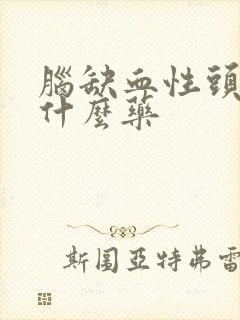 腦缺血性頭
什麼藥
斯圖亞特弗雷